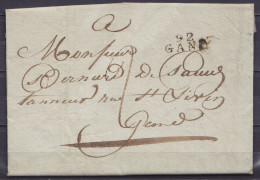 A
Monsieur
92
GAND
Bernard De
tanneur rue St
Gand